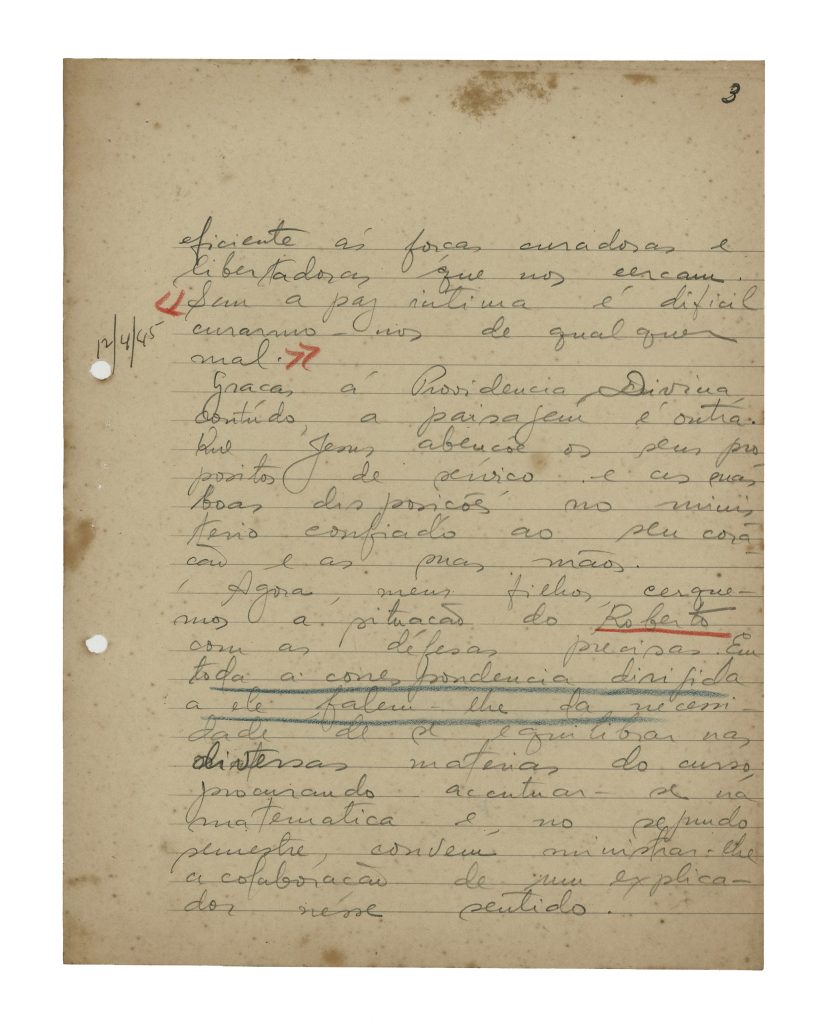 3
eficiente ás forcas curadoras e
libertadoras que nos cercam.
« Sem a paz intima é dificil
12/4/45
curarmo-nos de qualquer
mal. »
Gracas á Providencia Divina,
contúdo, a paisagem é outra.
Que Jesus abencoe os seus pro
positos de servico e as suas
boas disposicões no minis
terio confiado ao seu cora-
cão e as suas mãos.
Agora, meus filhos, cerque-
mos a situacão do Roberto
com as défesas precisas. Em
toda a correspondencia dirigida
a ele falem-lhe da necessi-
dade de se equilibrar nas
diversas materias do curso,
procurando acentuar-se na
matematica e no segundo
semestre, convem ministrar-lhe
a colaboracão de um explica-
dor nesse sentido.